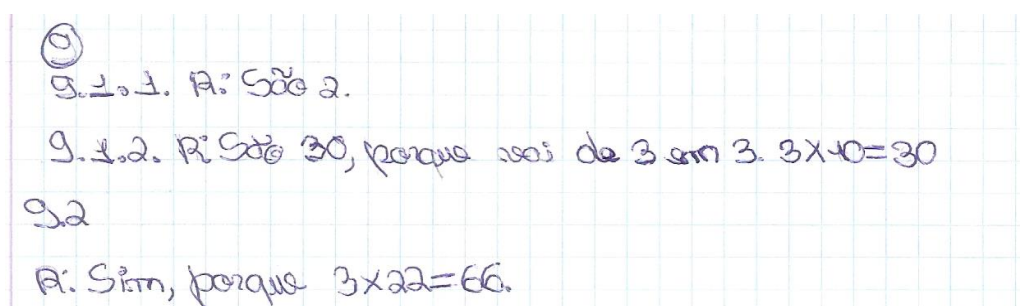 9
9.1.1. R: São 2.
9.1.2. R: São 30, porque vai de 3 em 3. 3x10=30
9.2
R: Sim, porque 3x22=66.